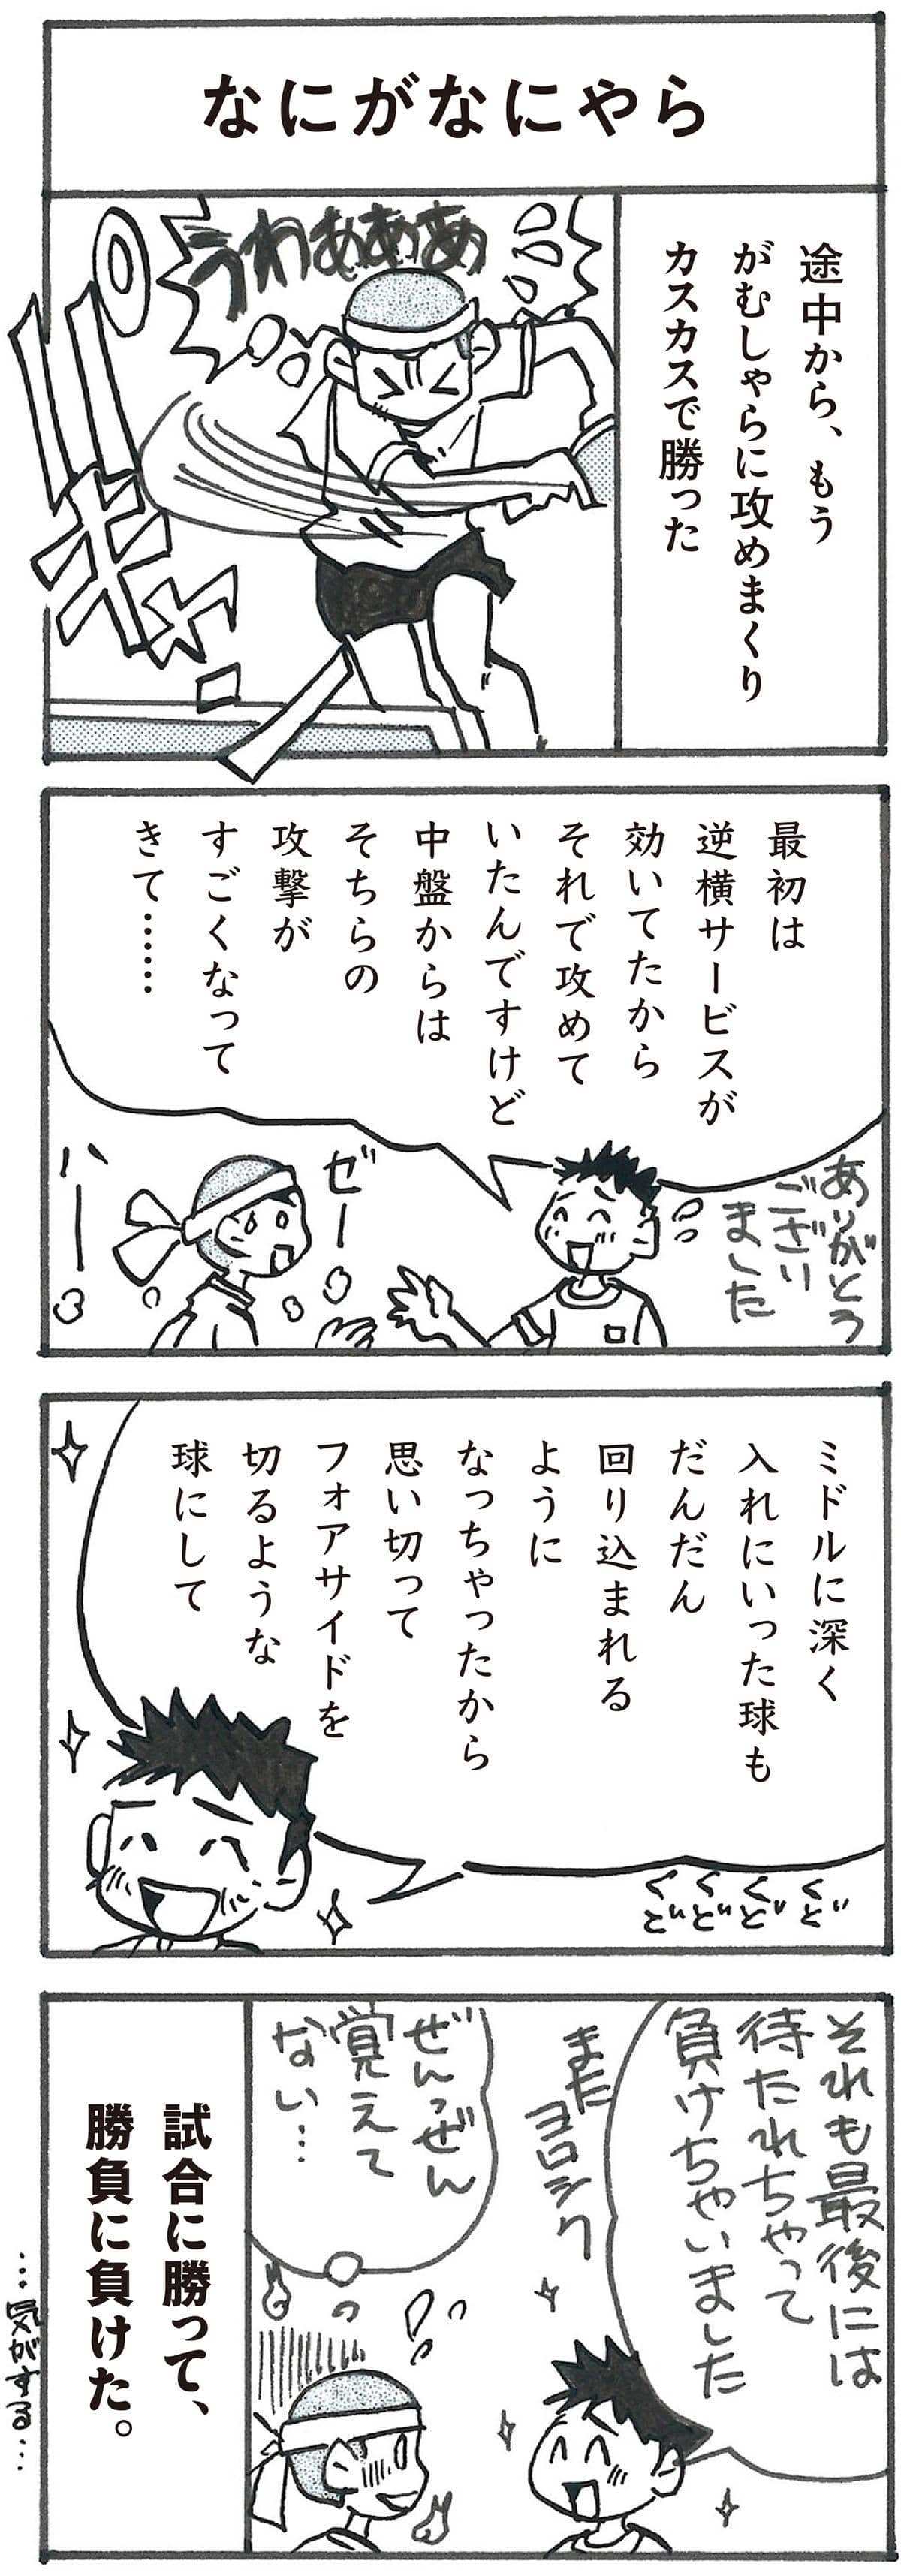 なにがなにやら
途中から、もう
がむしゃらに攻めまくり
カスカスで勝った
うわぁあああ
パキャ
最初は
逆横サービスが
効いてたから
それで攻めて
いたんですけど
中盤からは
そちらの
攻撃が
すごくなって
きて……
ありがとう
ござい
ました
ゼー
ハー
ミドルに深く
入れにいった球も
だんだん
回り込まれる
ように
なっちゃったから
思い切って
フォアサイドを
切るような
球にして
くど
くど
くど
くど
それも最後には
待たれちゃって
負けちゃいました
また
ヨロシク
ぜんっぜん
覚えて
ない…
試合に勝って、
勝負に負けた。
…気がする…